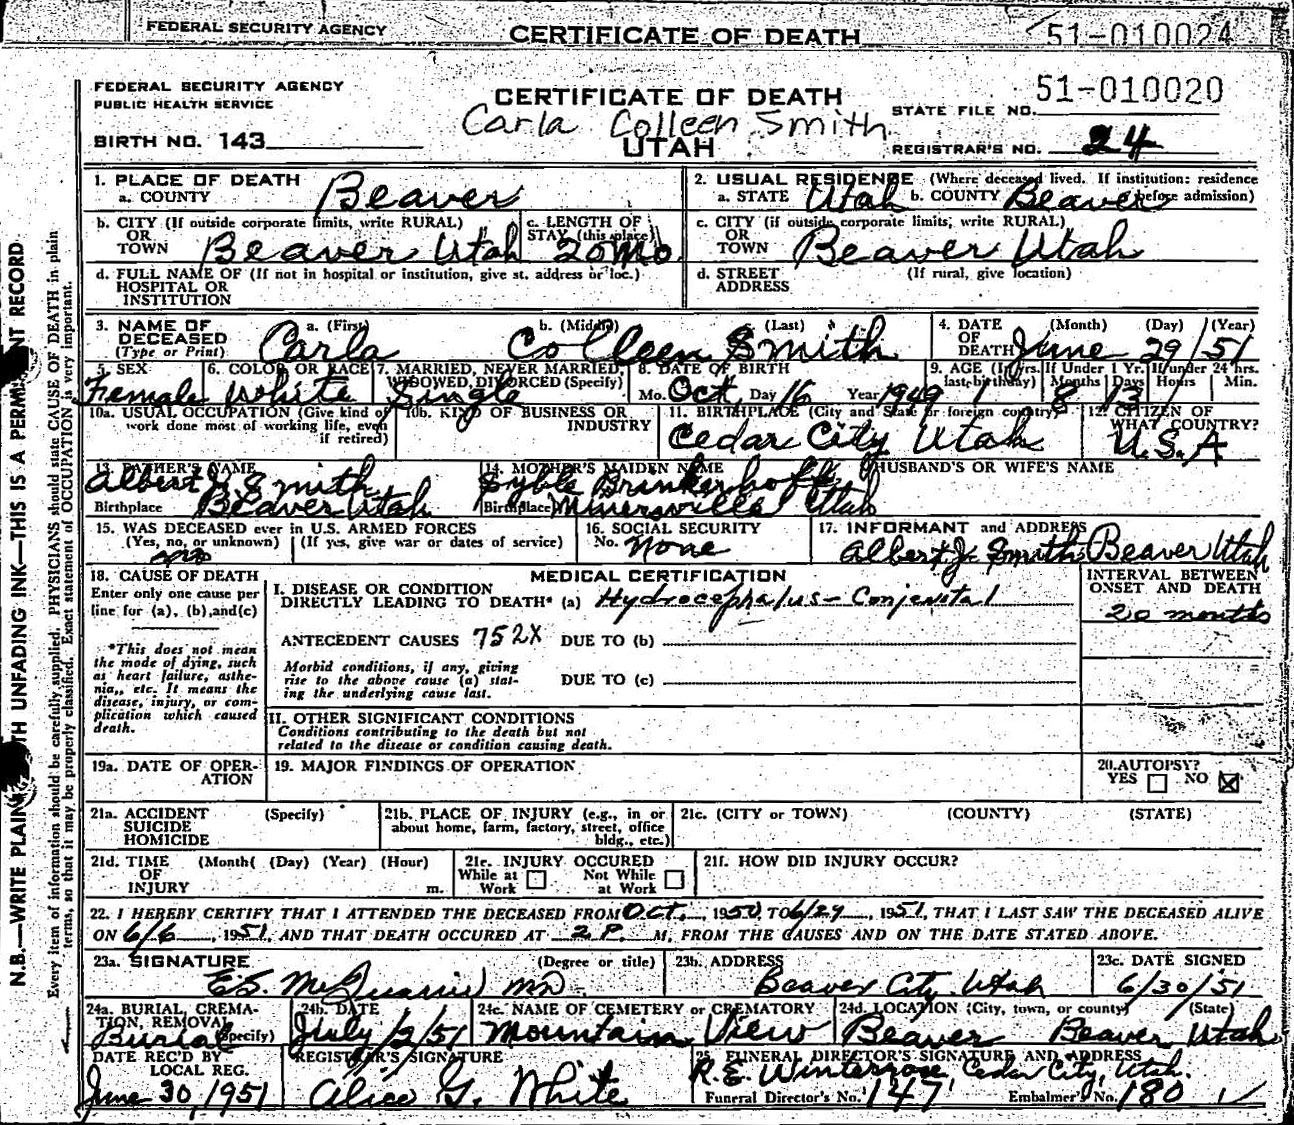 FEDERAL SECURITY AGENCY CERTIFICATE OF DEATH 51-010024
FEDERAL SECURITY AGENCY
PUBLIC HEALTH SERVICE
CERTIFICATE OF DEATH
STATE FILE NO. 51-010020
Carla Colleen Smith
BIRTH NO. 143
UTAH
REGISTRAR'S NO. 24
1. PLACE OF DEATH
a. COUNTY Beaver
2. USUAL RESIDENCE (Where deceased lived. If institution: residence before admission)
a. STATE Utah b. COUNTY Beaver
b. CITY (If outside corporate limits, write RURAL)
OR
TOWN Beaver Utah
c. LENGTH OF
STAY (this place) 20 Mo.
c. CITY (if outside corporate limits, write RURAL)
OR
TOWN Beaver Utah
d. FULL NAME OF (If not in hospital or institution, give st. address or loc.)
HOSPITAL OR
INSTITUTION
d. STREET
ADDRESS
(If rural, give location)
3. NAME OF
DECEASED
(Type or Print)
a. (First) b. (Middle) c. (Last)
Carla Colleen Smith
4. DATE
OF
DEATH
(Month) (Day) (Year)
June 29/51
5. SEX
Female
6. COLOR OR RACE
White
7. MARRIED, NEVER MARRIED,
WIDOWED, DIVORCED (Specify)
Single
8. DATE OF BIRTH
Mo. Oct Day 16 Year 1949
9. AGE (In yrs. last birthday) If Under 1 Yr. If under 24 hrs.
Months Days Hours Min.
1 8 13
10a. USUAL OCCUPATION (Give kind of
work done most of working life, even
if retired)
10b. KIND OF BUSINESS OR
INDUSTRY
11. BIRTHPLACE (City and State or foreign country)
Cedar City Utah
12. CITIZEN OF
WHAT COUNTRY?
U.S.A
13. FATHER'S NAME
Albert J. Smith
Birthplace Beaver Utah
14. MOTHER'S MAIDEN NAME
Syble Brinkerhoff
Birthplace Minersville Utah
HUSBAND'S OR WIFE'S NAME
15. WAS DECEASED ever in U.S. ARMED FORCES
(Yes, no, or unknown) (If yes, give war or dates of service)
no
16. SOCIAL SECURITY
No. None
17. INFORMANT and ADDRESS
Albert J. Smith Beaver Utah
18. CAUSE OF DEATH
Enter only one cause per
line for (a), (b), and (c)
*This does not mean
the mode of dying, such
as heart failure, asthe-
nia, etc. It means the
disease, injury, or com-
plication which caused
death.
MEDICAL CERTIFICATION
I. DISEASE OR CONDITION
DIRECTLY LEADING TO DEATH* (a) Hydrocephalus - Conjenital
ANTECEDENT CAUSES 752X DUE TO (b)
Morbid conditions, if any, giving
rise to the above cause (a) stat-
ing the underlying cause last.
DUE TO (c)
INTERVAL BETWEEN
ONSET AND DEATH
20 months
II. OTHER SIGNIFICANT CONDITIONS
Conditions contributing to the death but not
related to the disease or condition causing death.
19a. DATE OF OPER-
ATION
19. MAJOR FINDINGS OF OPERATION
20. AUTOPSY?
YES NO
21a. ACCIDENT (Specify)
SUICIDE
HOMICIDE
21b. PLACE OF INJURY (e.g., in or
about home, farm, factory, street, office
bldg., etc.)
21c. (CITY or TOWN) (COUNTY) (STATE)
21d. TIME (Month( (Day) (Year) (Hour)
OF
INJURY m.
21e. INJURY OCCURED
While at Not While
Work at Work
21f. HOW DID INJURY OCCUR?
22. I HEREBY CERTIFY THAT I ATTENDED THE DECEASED FROM Oct., 1950, TO 6/29, 1951, THAT I LAST SAW THE DECEASED ALIVE
ON 6/6, 1951, AND THAT DEATH OCCURED AT 2 P. M, FROM THE CAUSES AND ON THE DATE STATED ABOVE.
23a. SIGNATURE (Degree or title)
E.S. McQuarrie MD
23b. ADDRESS
Beaver City Utah
23c. DATE SIGNED
6/30/51
24a. BURIAL, CREMA-
TION, REMOVAL
(Specify) Burial
24b. DATE
July/2/51
24c. NAME OF CEMETERY or CREMATORY
Mountain View
24d. LOCATION (City, town, or county) (State)
Beaver Beaver Utah
DATE REC'D BY
LOCAL REG.
June 30, 1951
REGISTRAR'S SIGNATURE
Alice G. White
25. FUNERAL DIRECTOR'S SIGNATURE AND ADDRESS
R.E. Winterrose Cedar City, Utah.
Funeral Director's No. 147 Embalmer's No. 180
N.B.—WRITE PLAINLY WITH UNFADING INK—THIS IS A PERMANENT RECORD
Every item of information should be carefully supplied. PHYSICIANS should state CAUSE OF DEATH in plain
terms, so that it may be properly classified. Exact statement of OCCUPATION is very important.